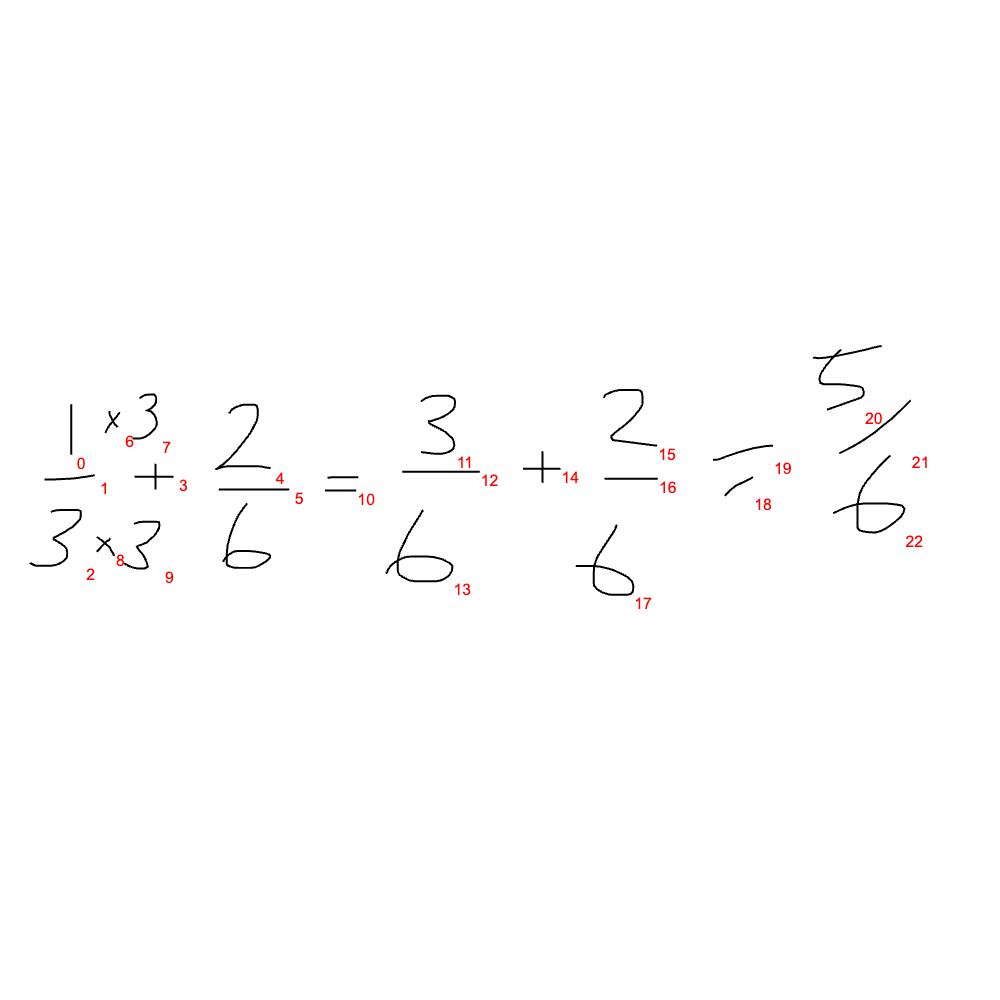 1 ×3 / 3 ×3 + 2/6 = 3/6 + 2/6 = 5/6
0 1 2 3 4 5 6 7 8 9 10 11 12 13 14 15 16 17 18 19 20 21 22